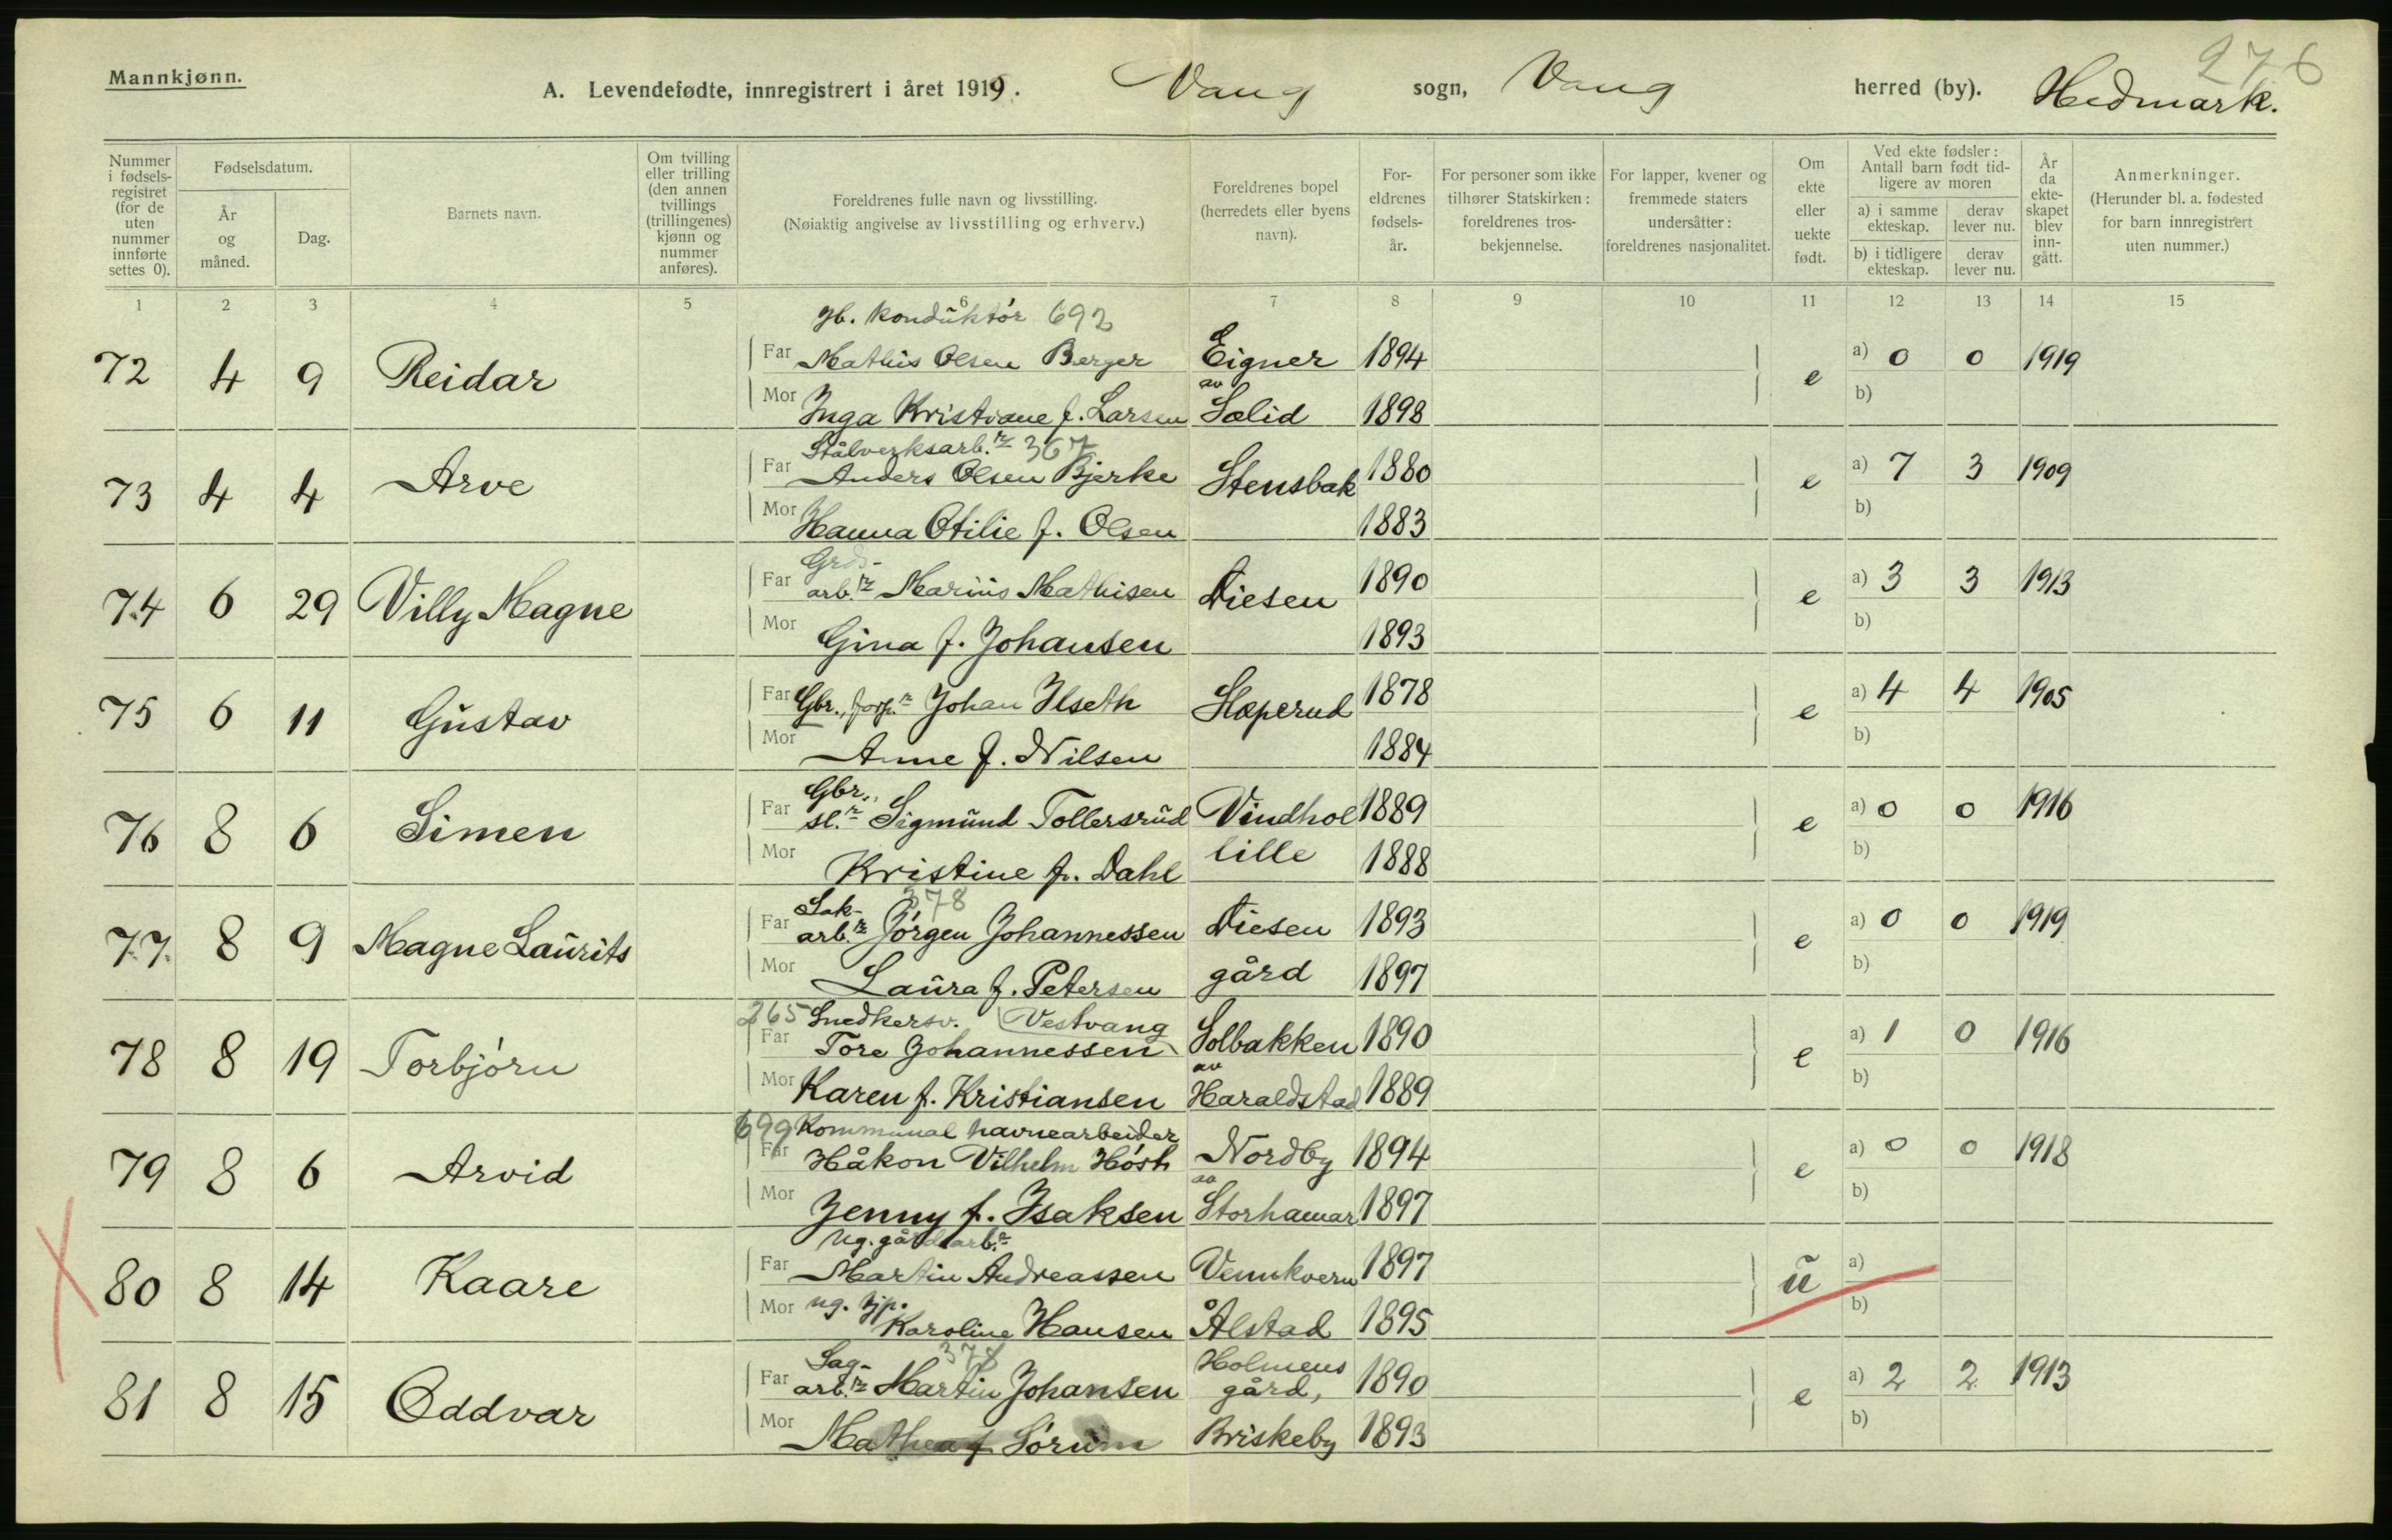 276
Mannkjønn.
A. Levendefødte, innregistrert i året 1919. Vang sogn, Vang herred (by). Hedmark.
Nummer i fødselsregistret (for de uten nummer innførte settes 0).
Fødselsdatum.
År og måned.
Dag.
Barnets navn.
Om tvilling eller trilling (den annen tvillings (trillingenes) kjønn og nummer anføres).
Foreldrenes fulle navn og livsstilling.
(Nøiaktig angivelse av livsstilling og erhverv.)
Foreldrenes bopel (herredets eller byens navn).
Foreldrenes fødselsår.
For personer som ikke tilhører Statskirken: foreldrenes trosbekjennelse.
For lapper, kvener og fremmede staters undersåtter: foreldrenes nasjonalitet.
Om ekte eller uekte født.
Ved ekte fødsler: Antall barn født tidligere av moren
a) i samme ekteskap. derav lever nu.
b) i tidligere ekteskap. derav lever nu.
År da ekteskapet blev inngått.
Anmerkninger.
(Herunder bl. a. fødested for barn innregistrert uten nummer.)
1 2 3 4 5 6 7 8 9 10 11 12 13 14 15
Jb. konduktör 692
72 4 9 Reidar Far Mathis Olsen Berger Eigner 1894 e a) 0 0 1919
Mor Inga Kristiane f. Larsen av Solid 1898 b)
Stålverksarb.r 367
73 4 4 Arve Far Anders Olsen Bjerke Stensbak 1880 e a) 7 3 1909
Mor Hanna Otilie f. Olsen 1883 b)
Grds-
74 6 29 Villy Magne Far arb.r Marius Mathisen Diesen 1890 e a) 3 3 1913
Mor Gina f. Johansen 1893 b)
75 6 11 Gustav Far Gbr., forp.r Johan Ilseth Slæperud 1878 e a) 4 4 1905
Mor Anne f. Nilsen 1884 b)
Gbr.,
76 8 6 Simen Far sl.r Sigmund Tollersrud Vindhol 1889 e a) 0 0 1916
Mor Kristine f. Dahl lille 1888 b)
Sak- 378
77. 8 9 Magne Laurits Far arb.r Jörgen Johannessen Diesen 1893 e a) 0 0 1919
Mor Laura f. Petersen gård 1897 b)
265 Snedkersv. Vestvang
78 8 19 Torbjörn Far Tore Johannessen Solbakken 1890 e a) 1 0 1916
Mor Karen f. Kristiansen av Haraldstad 1889 b)
699 Kommunal havnearbeider
79 8 6 Arvid Far Håkon Vilhelm Hösh Nordby 1894 e a) 0 0 1918
Mor Jenny f. Isaksen av Storhamar 1897 b)
Ug. gårdsarb.r
80 8 14 Kaare Far Martin Andreassen Vennkvern 1897 u a)
Mor ug. tjp. Karoline Hansen Ålstad 1895 b)
Sag- 378 Holmens
81 8 15 Oddvar Far arb.r Martin Johansen gård, 1890 e a) 2 2 1913
Mor Mathea f Sörum Briskeby 1893 b)